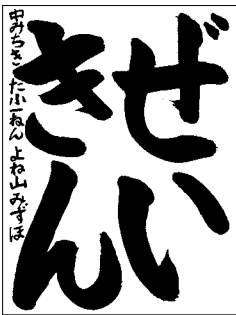 ぜい
きん
中みちきた小一ねん よね山みずほ